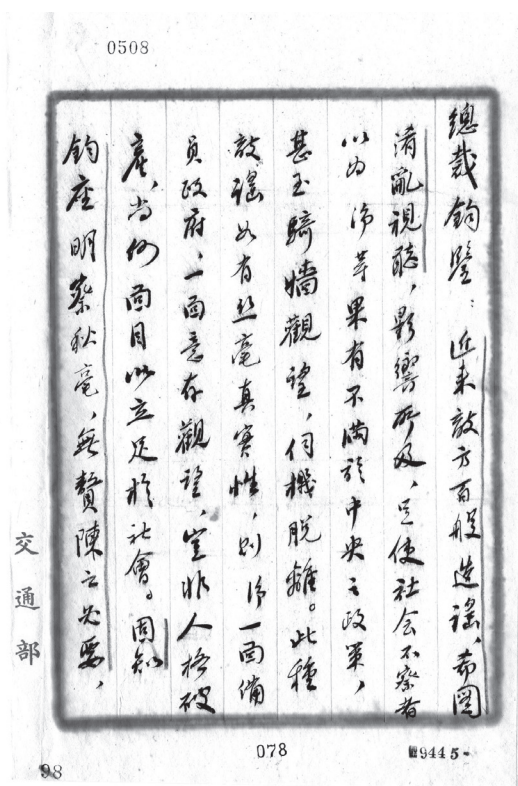 0508
總裁鈞鑒：近來敵方百般造謠，希圖
淆亂視聽，影響所及，足使社会不察者
以為 等果有不滿於中央之政策，
甚至騎墻觀望，伺機脫離。此種
敵謠如有丝毫真實性，則 一面備
員政府，一面意存觀望，豈非人格破
產，尚何面目以立足於社會。固知
鈞座明察秋毫，無贅陳之必要，
交通部
078
9445-
98